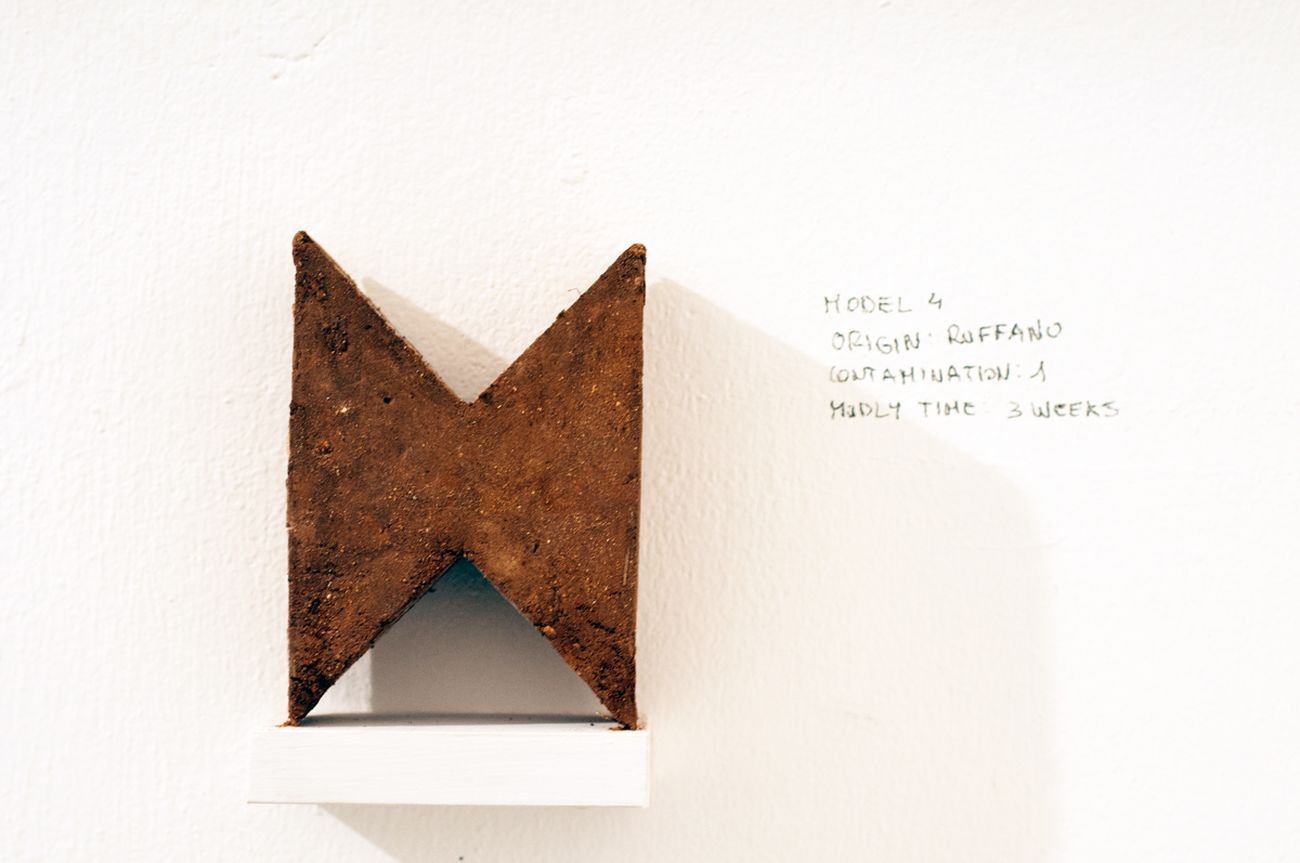 MODEL 4
ORIGIN: RUFFANO
CONTAMINATION: 1
MUDLY TIME: 3 WEEKS